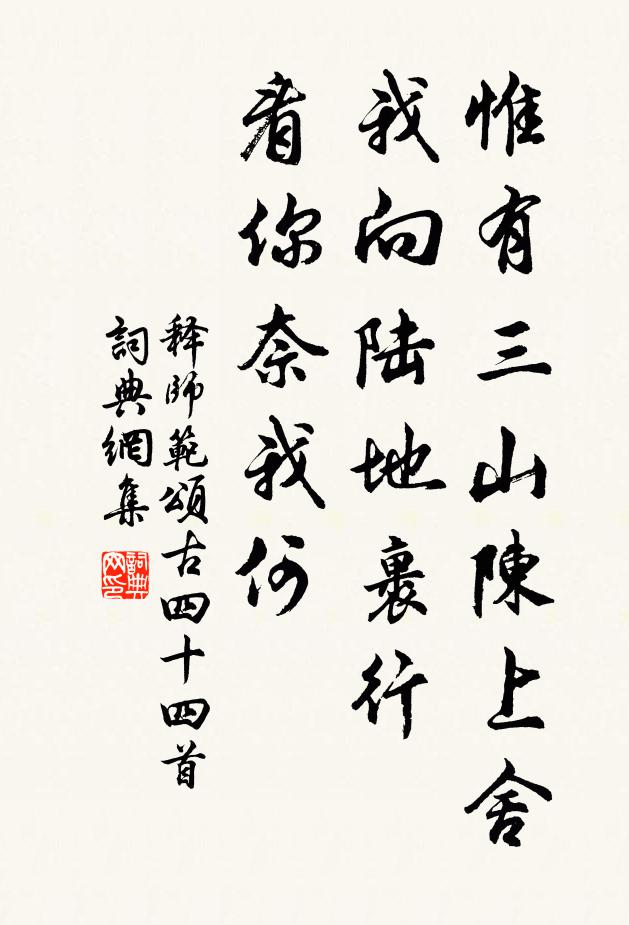 惟有三山陳上舍
我向陆地裹行
看你奈我何
释師範頌古四十四首
詞典網集
詞典網印